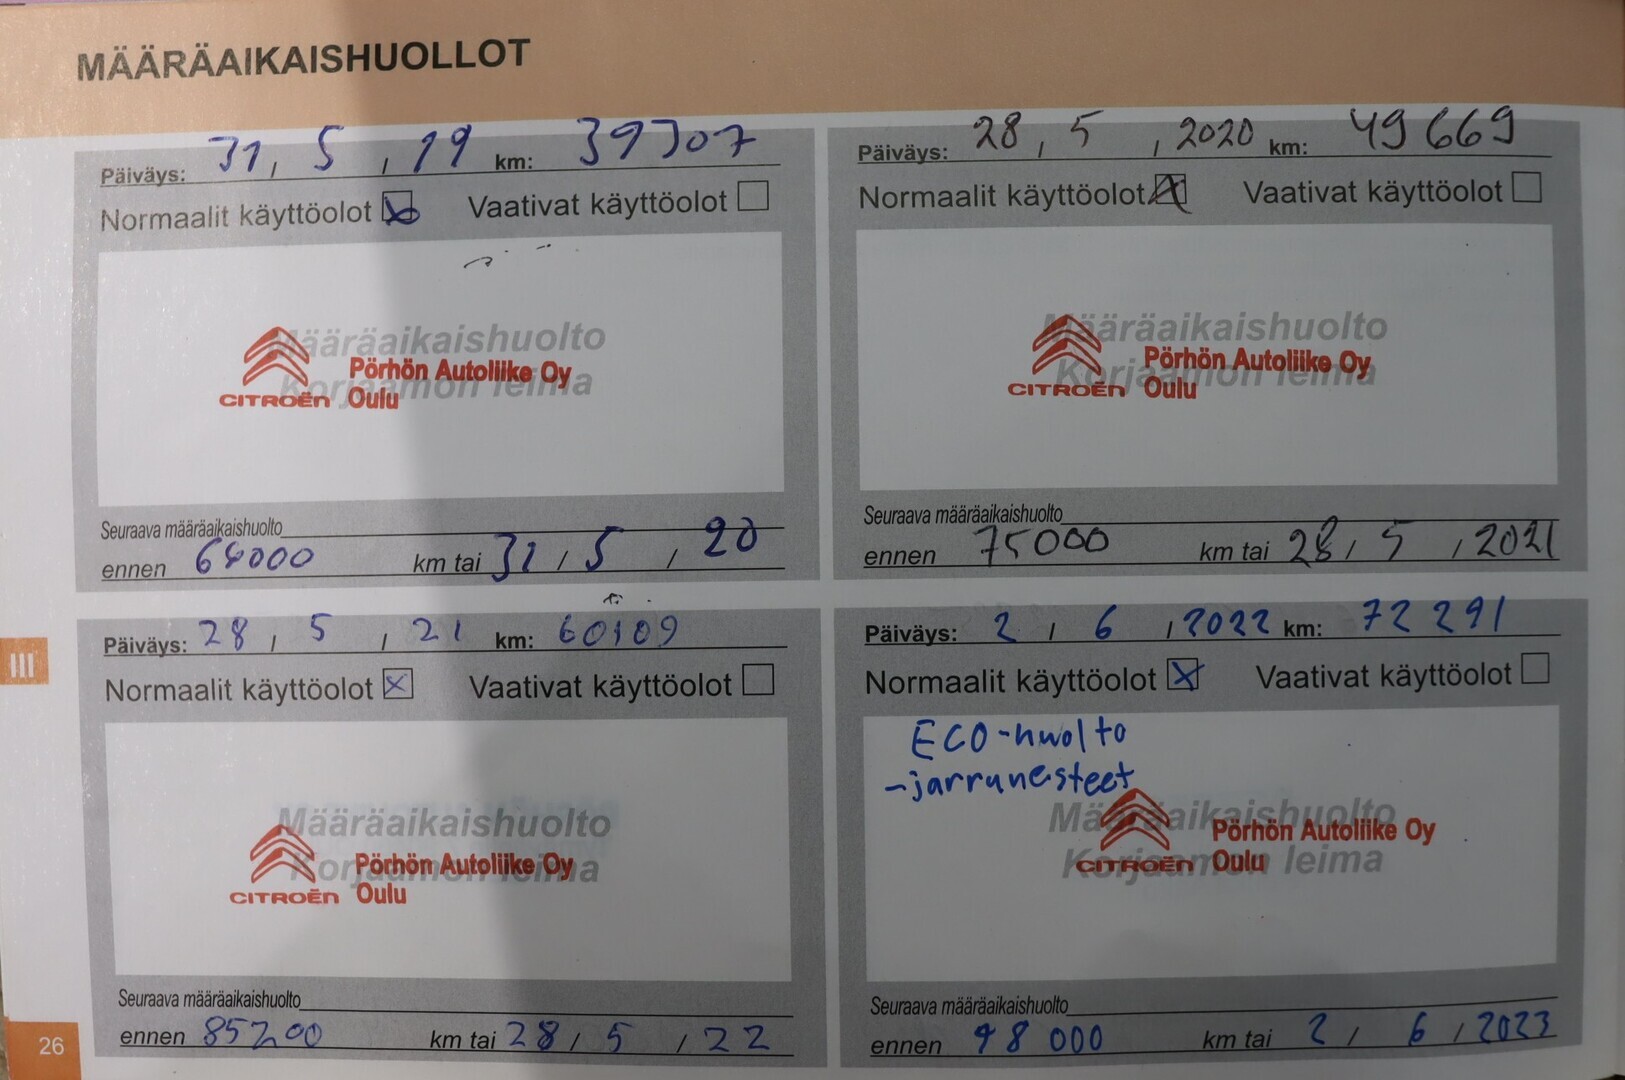 MÄÄRÄAIKAISHUOLLOT
Päiväys: 31, 5, 19 km: 39307
Normaalit käyttöolot Vaativat käyttöolot
Määräaikaishuolto
Korjaamon leima
CITROËN Pörhön Autoliike Oy
Oulu
Seuraava määräaikaishuolto
ennen 64000 km tai 31 / 5 / 20
Päiväys: 28, 5, 2020 km: 49669
Normaalit käyttöolot Vaativat käyttöolot
Määräaikaishuolto
Korjaamon leima
CITROËN Pörhön Autoliike Oy
Oulu
Seuraava määräaikaishuolto
ennen 75000 km tai 28 / 5 / 2021
Päiväys: 28 / 5 / 21 km: 60109
Normaalit käyttöolot Vaativat käyttöolot
Määräaikaishuolto
Korjaamon leima
CITROËN Pörhön Autoliike Oy
Oulu
Seuraava määräaikaishuolto
ennen 85200 km tai 28 / 5 / 22
Päiväys: 2 / 6 / 2022 km: 72 291
Normaalit käyttöolot Vaativat käyttöolot
ECO-huolto
-jarrunesteet
Määräaikaishuolto
Korjaamon leima
CITROËN Pörhön Autoliike Oy
Oulu
Seuraava määräaikaishuolto
ennen 98 000 km tai 2 / 6 / 2023
III
26